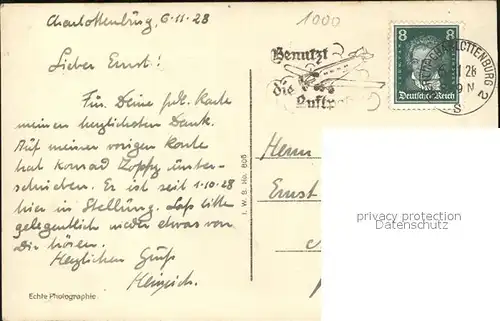 Charlottenburg, 6.11.28
1000
Lieber Ernst:
Für Deine frdl. Karte
meinen herzlichsten Dank.
Auf meiner vorigen Karte
hat Konrad Zoppy unter-
schrieben. Er ist seit 1.10.28
hier in Stellung. Laß bitte
gelegentlich wieder etwas von
Dir hören.
Herzlichen Gruß
Heinrich.
Echte Photographie
I. W. B. No. 605
Benutzt
die
Luftpost
8 8
Deutsches Reich
CHARLOTTENBURG 2
11 28
9 N
S
Herrn
Ernst
privacy protection
Datenschutz